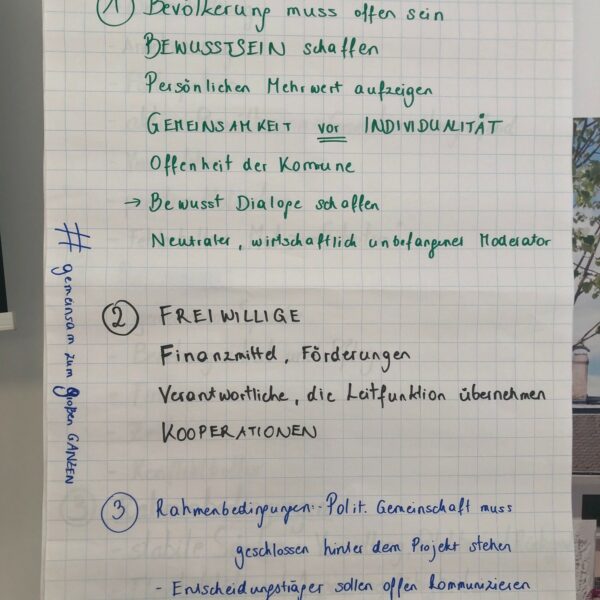 1 Bevölkerung muss offen sein
BEWUSSTSEIN schaffen
Persönlichen Mehrwert aufzeigen
GEMEINSAMKEIT vor INDIVIDUALITÄT
Offenheit der Kommune
→ Bewusst Dialoge schaffen
Neutraler, wirtschaftlich unbefangener Moderator
# gemeinsam zum großen GANZEN
2 FREIWILLIGE
Finanzmittel, Förderungen
Verantwortliche, die Leitfunktion übernehmen
KOOPERATIONEN
3 Rahmenbedingungen: - Polit. Gemeinschaft muss
geschlossen hinter dem Projekt stehen
- Entscheidungsträger sollen offen kommunizieren